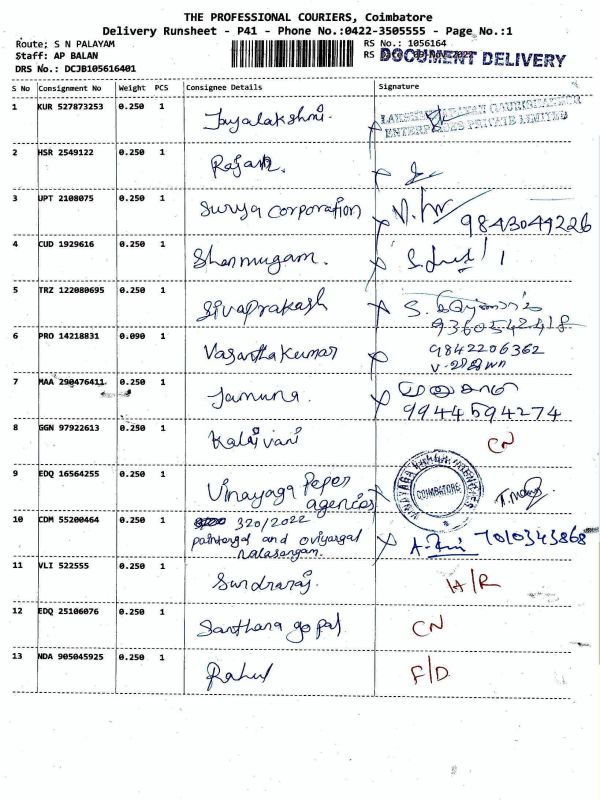 THE PROFESSIONAL COURIERS, Coimbatore
Delivery Runsheet - P41 - Phone No.:0422-3505555 - Page No.:1
Route; S N PALAYAM
RS No.: 1056164
Staff: AP BALAN
RS
DOCUMENT DELIVERY
DRS No.: DCJB105616401
S No Consignment No Weight PCS Consignee Details Signature
1 KUR 527873253 0.250 1 Jayalakshmi.
LAKSHMINARAYAN GOURISHANKER
ENTERPRISES PRIVATE LIMITED
2 HSR 2549122 0.250 1 Rajan.
3 UPT 2108075 0.250 1 Surya corporation
9843044226
4 CUD 1929616 0.250 1 Shanmugam.
5 TRZ 122080695 0.250 1 Sivaprakash
9360542418
6 PRO 14218831 0.090 1 Vasanthakumar 9842206362
7 MAA 290476411 0.250 1 Jamuna.
9944594274
8 GGN 97922613 0.250 1 Kalaivani CN
9 EDQ 16564255 0.250 1 Vinayaga Peper
agencies
VINAYAGA PAPER AGENCIES
COIMBATORE
10 CDM 55200464 0.250 1 320/2022
paintergal and oviyargal
nalasangam.
7010343868
11 VLI 522555 0.250 1 Sundraraj. H/R
12 EDQ 25106076 0.250 1 Santhana gopal CN
13 NDA 905045925 0.250 1 Rahul F/D